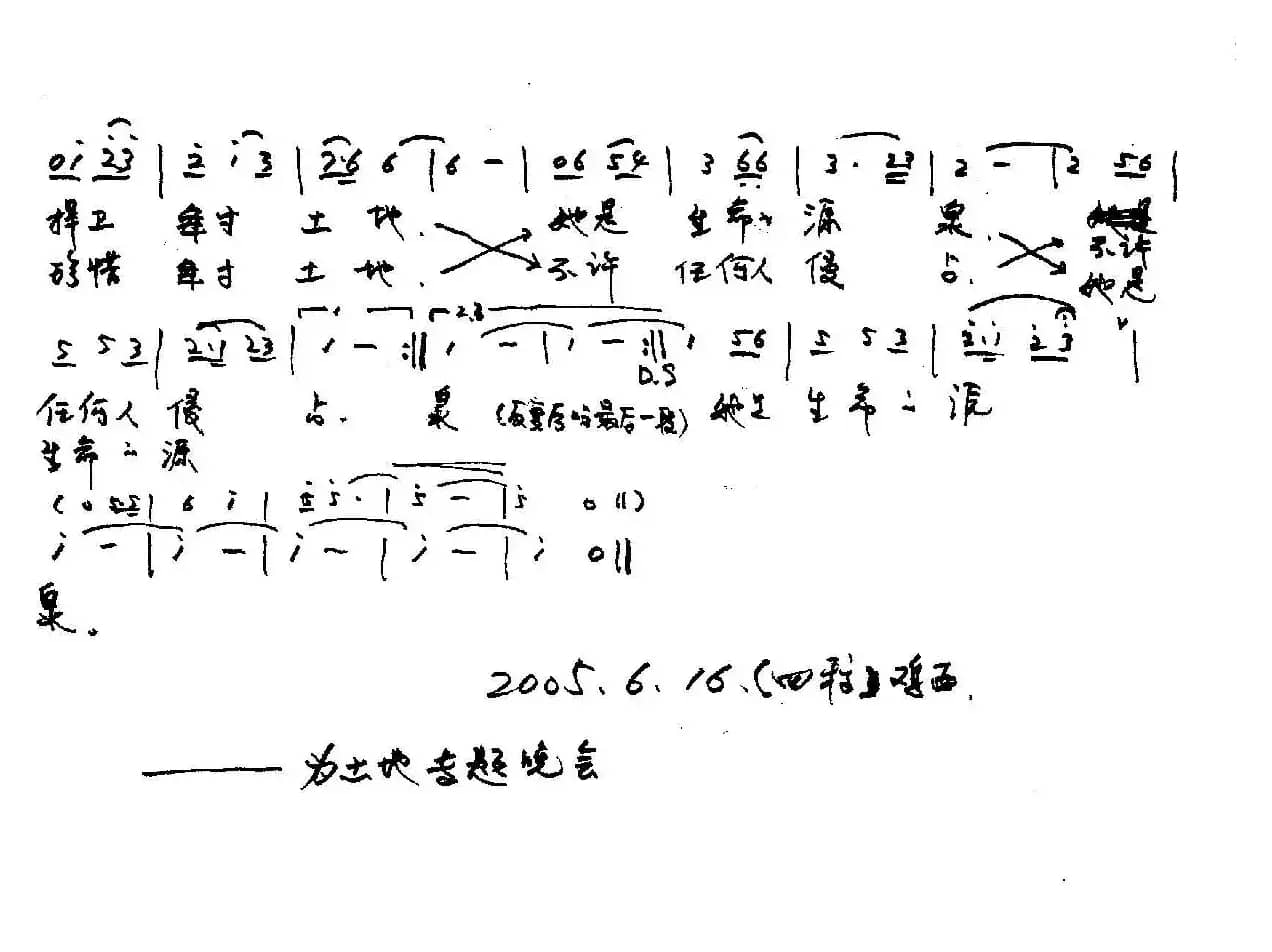 0i 23 | 2 i 3 | 2·6 6 | 6 – | 06 54 | 3 66 | 3 · 23 | 2 – | 2 56 |
捍卫 每寸 土 地. 她是 生 命的 源 泉. 不许
珍惜 每寸 土 地. 不许 任何人 侵 占. 她是
5 5 3 | 2·i 23 | i – :|| i – | i – :|| i 56 | 5 5 3 | 2·i 2 3 |
1. 2.3
D.S
任何人 侵 占. 泉 (反复后的最后一段) 她是 生 命 的 源
生命的源
( 0 55 | 6 i | 5 5 · | 5 – | 5 0 || )
i – | i – | i – | i – | i 0 ||
泉。
2005.6.16.(四稿)鸡西.
—— 为土地专题晚会